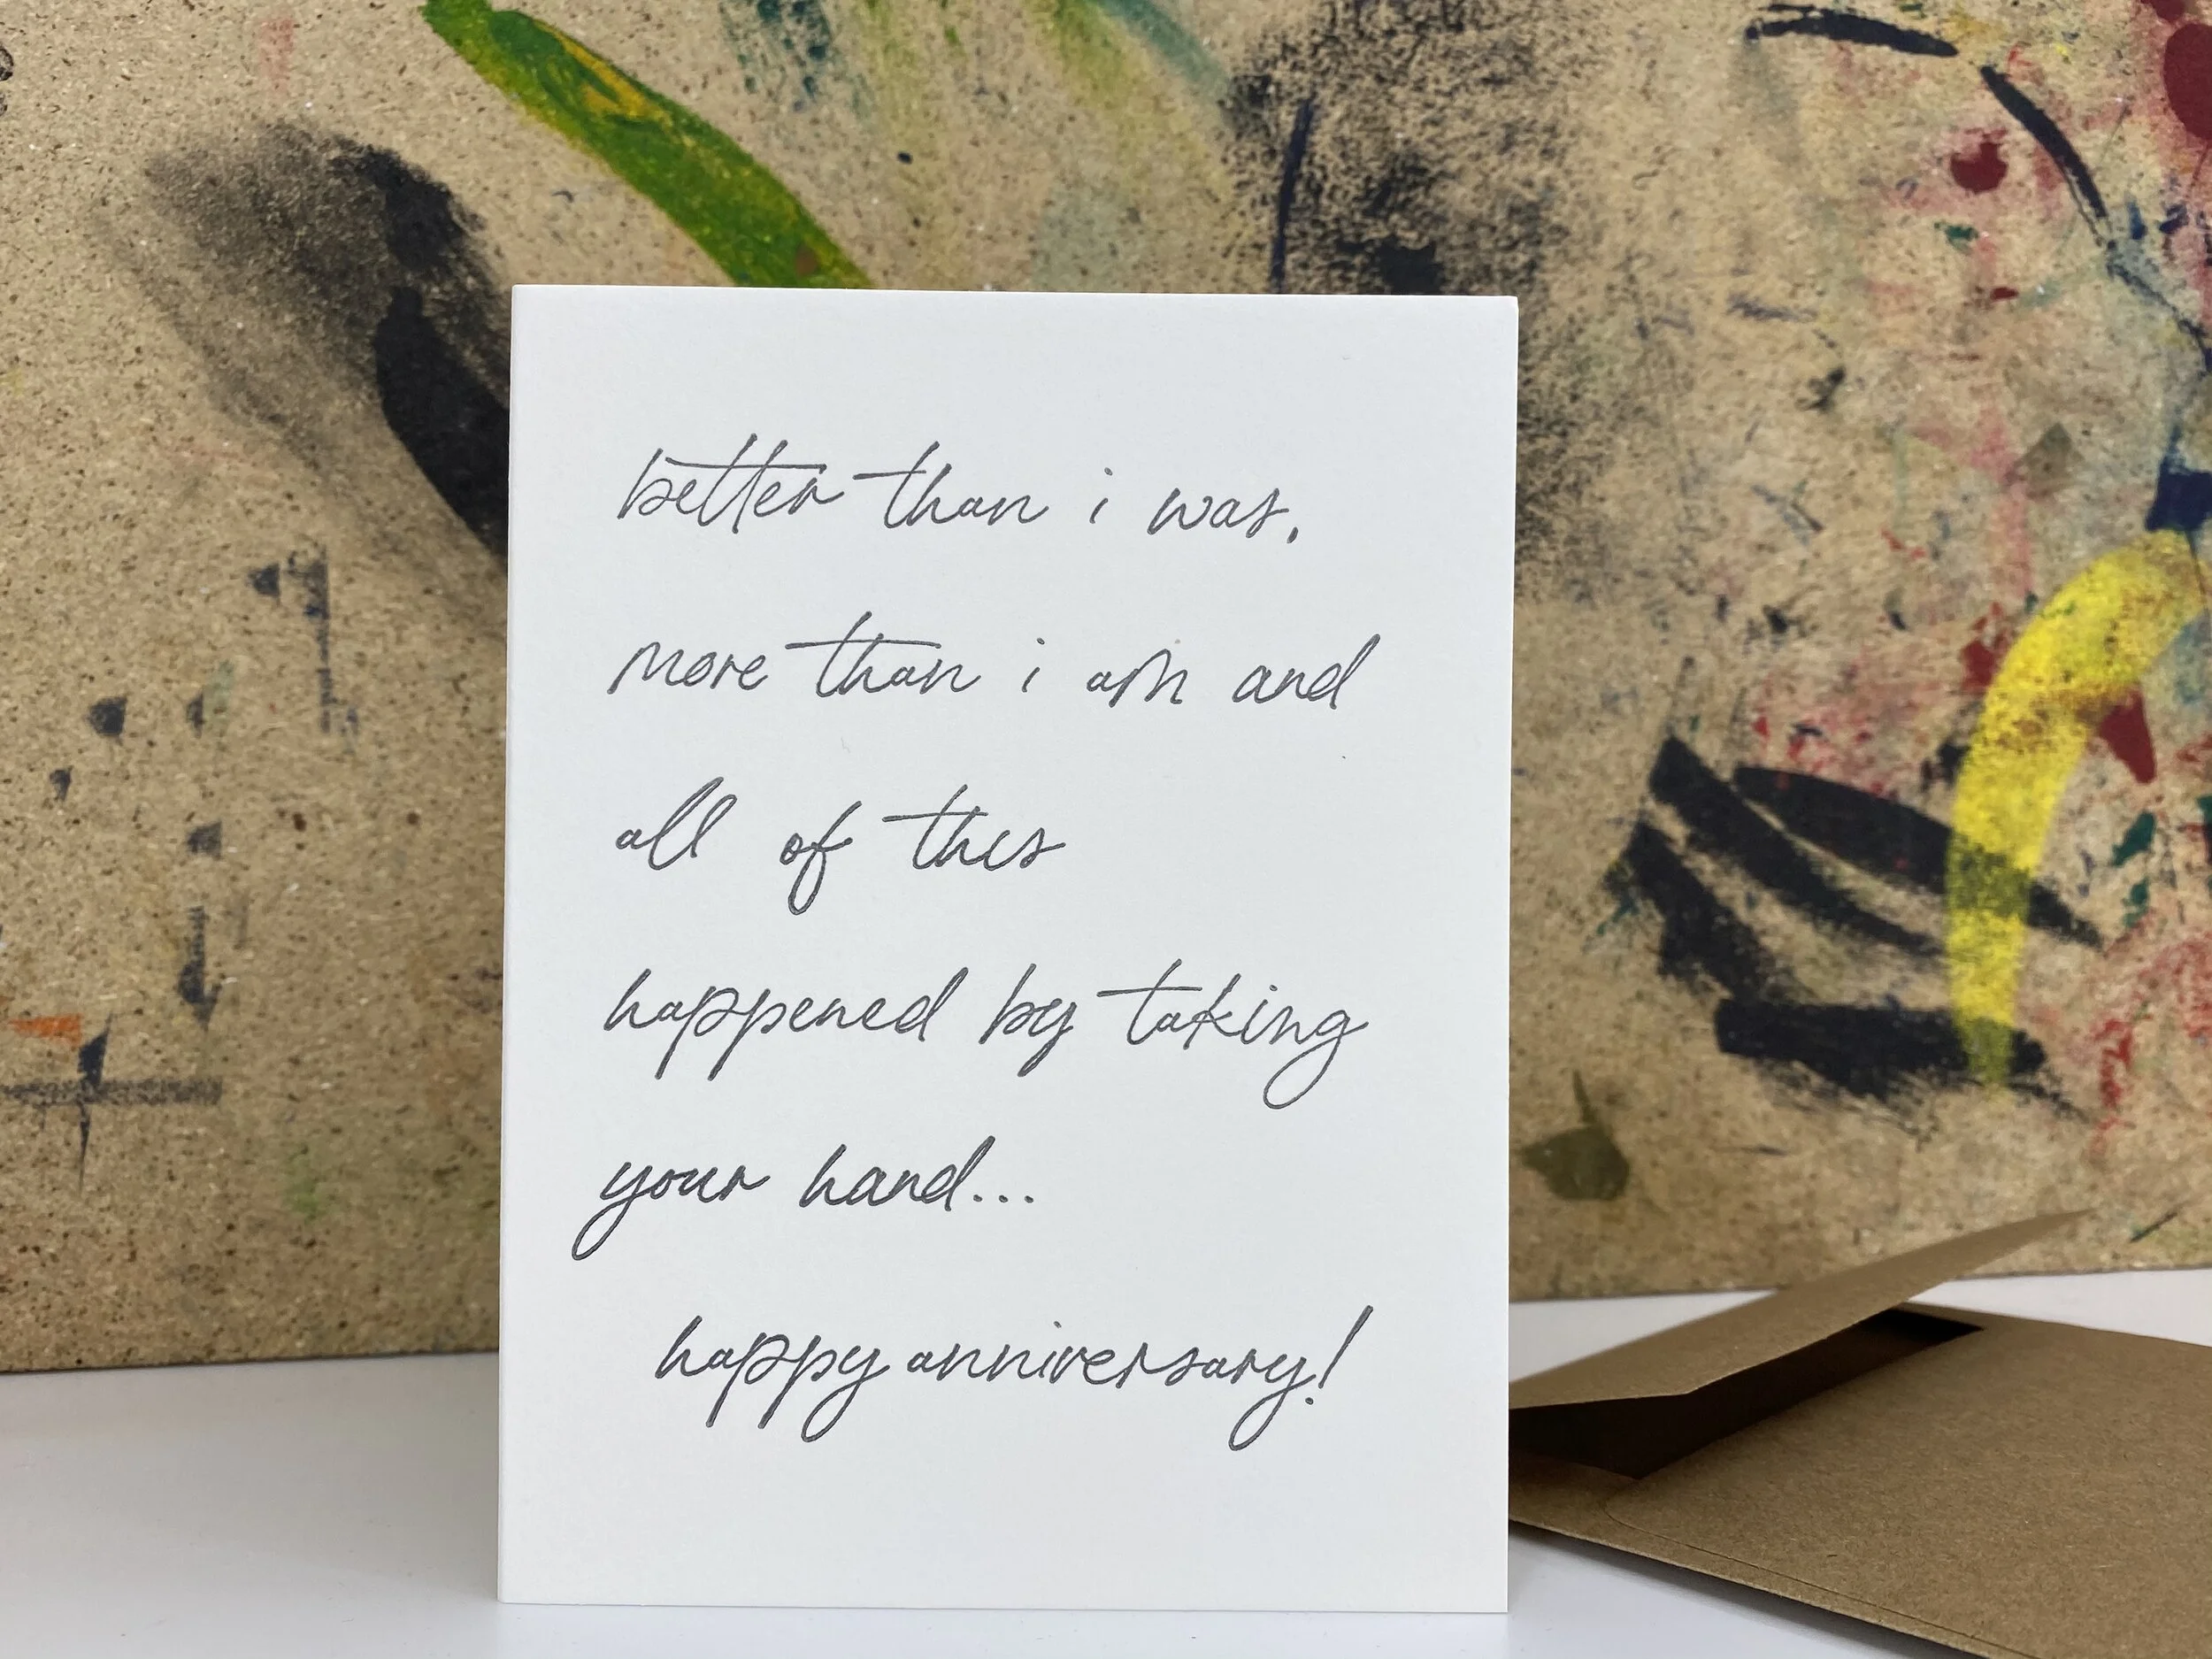 better than i was,
more than i am and
all of this
happened by taking
your hand...
happy anniversary!